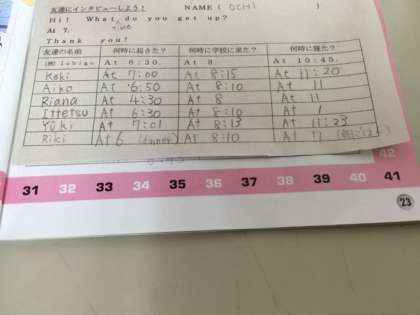 友達にインタビューしよう! NAME ( OCHI )
Hi! What do you get up?
time
At 7.
Thank you!
友達の名前 何時に起きた? 何時に学校に来た? 何時に寝た?
(例) Ichigo At 6:30. At 8. At 10:45.
Koki At 7:00 At 8:15 At 11:20
Aiko At 6:50 At 8:10 At 11
Riana At 4:30 At 8 At 11
Ittetsu At 6:30 At 8:10 At 1
Yuki At 7:01 At 8:15 At 11:23
Riki At 6 (dinner) At 8:10 At 11
42
31 32 33 34 35 36 37 38 39 40 41
23